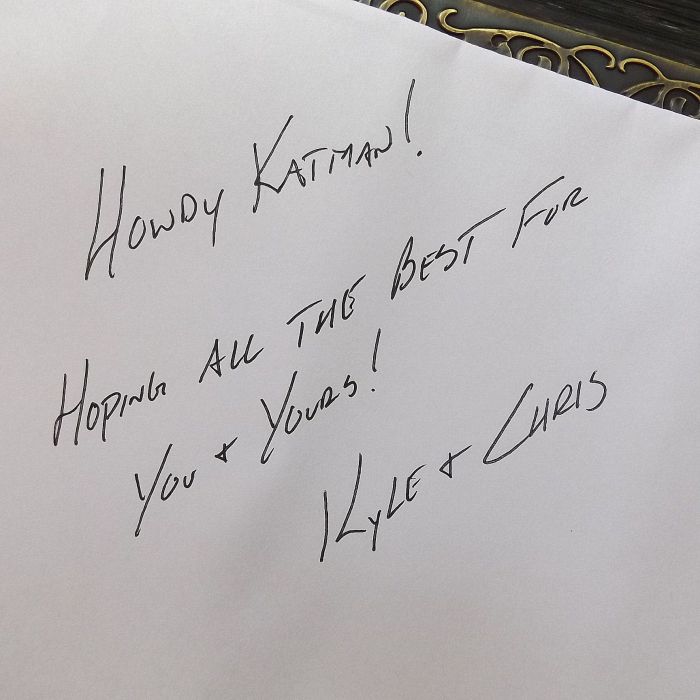 Howdy Katman!
Hoping All The Best For
You + Yours!
Kyle + Chris